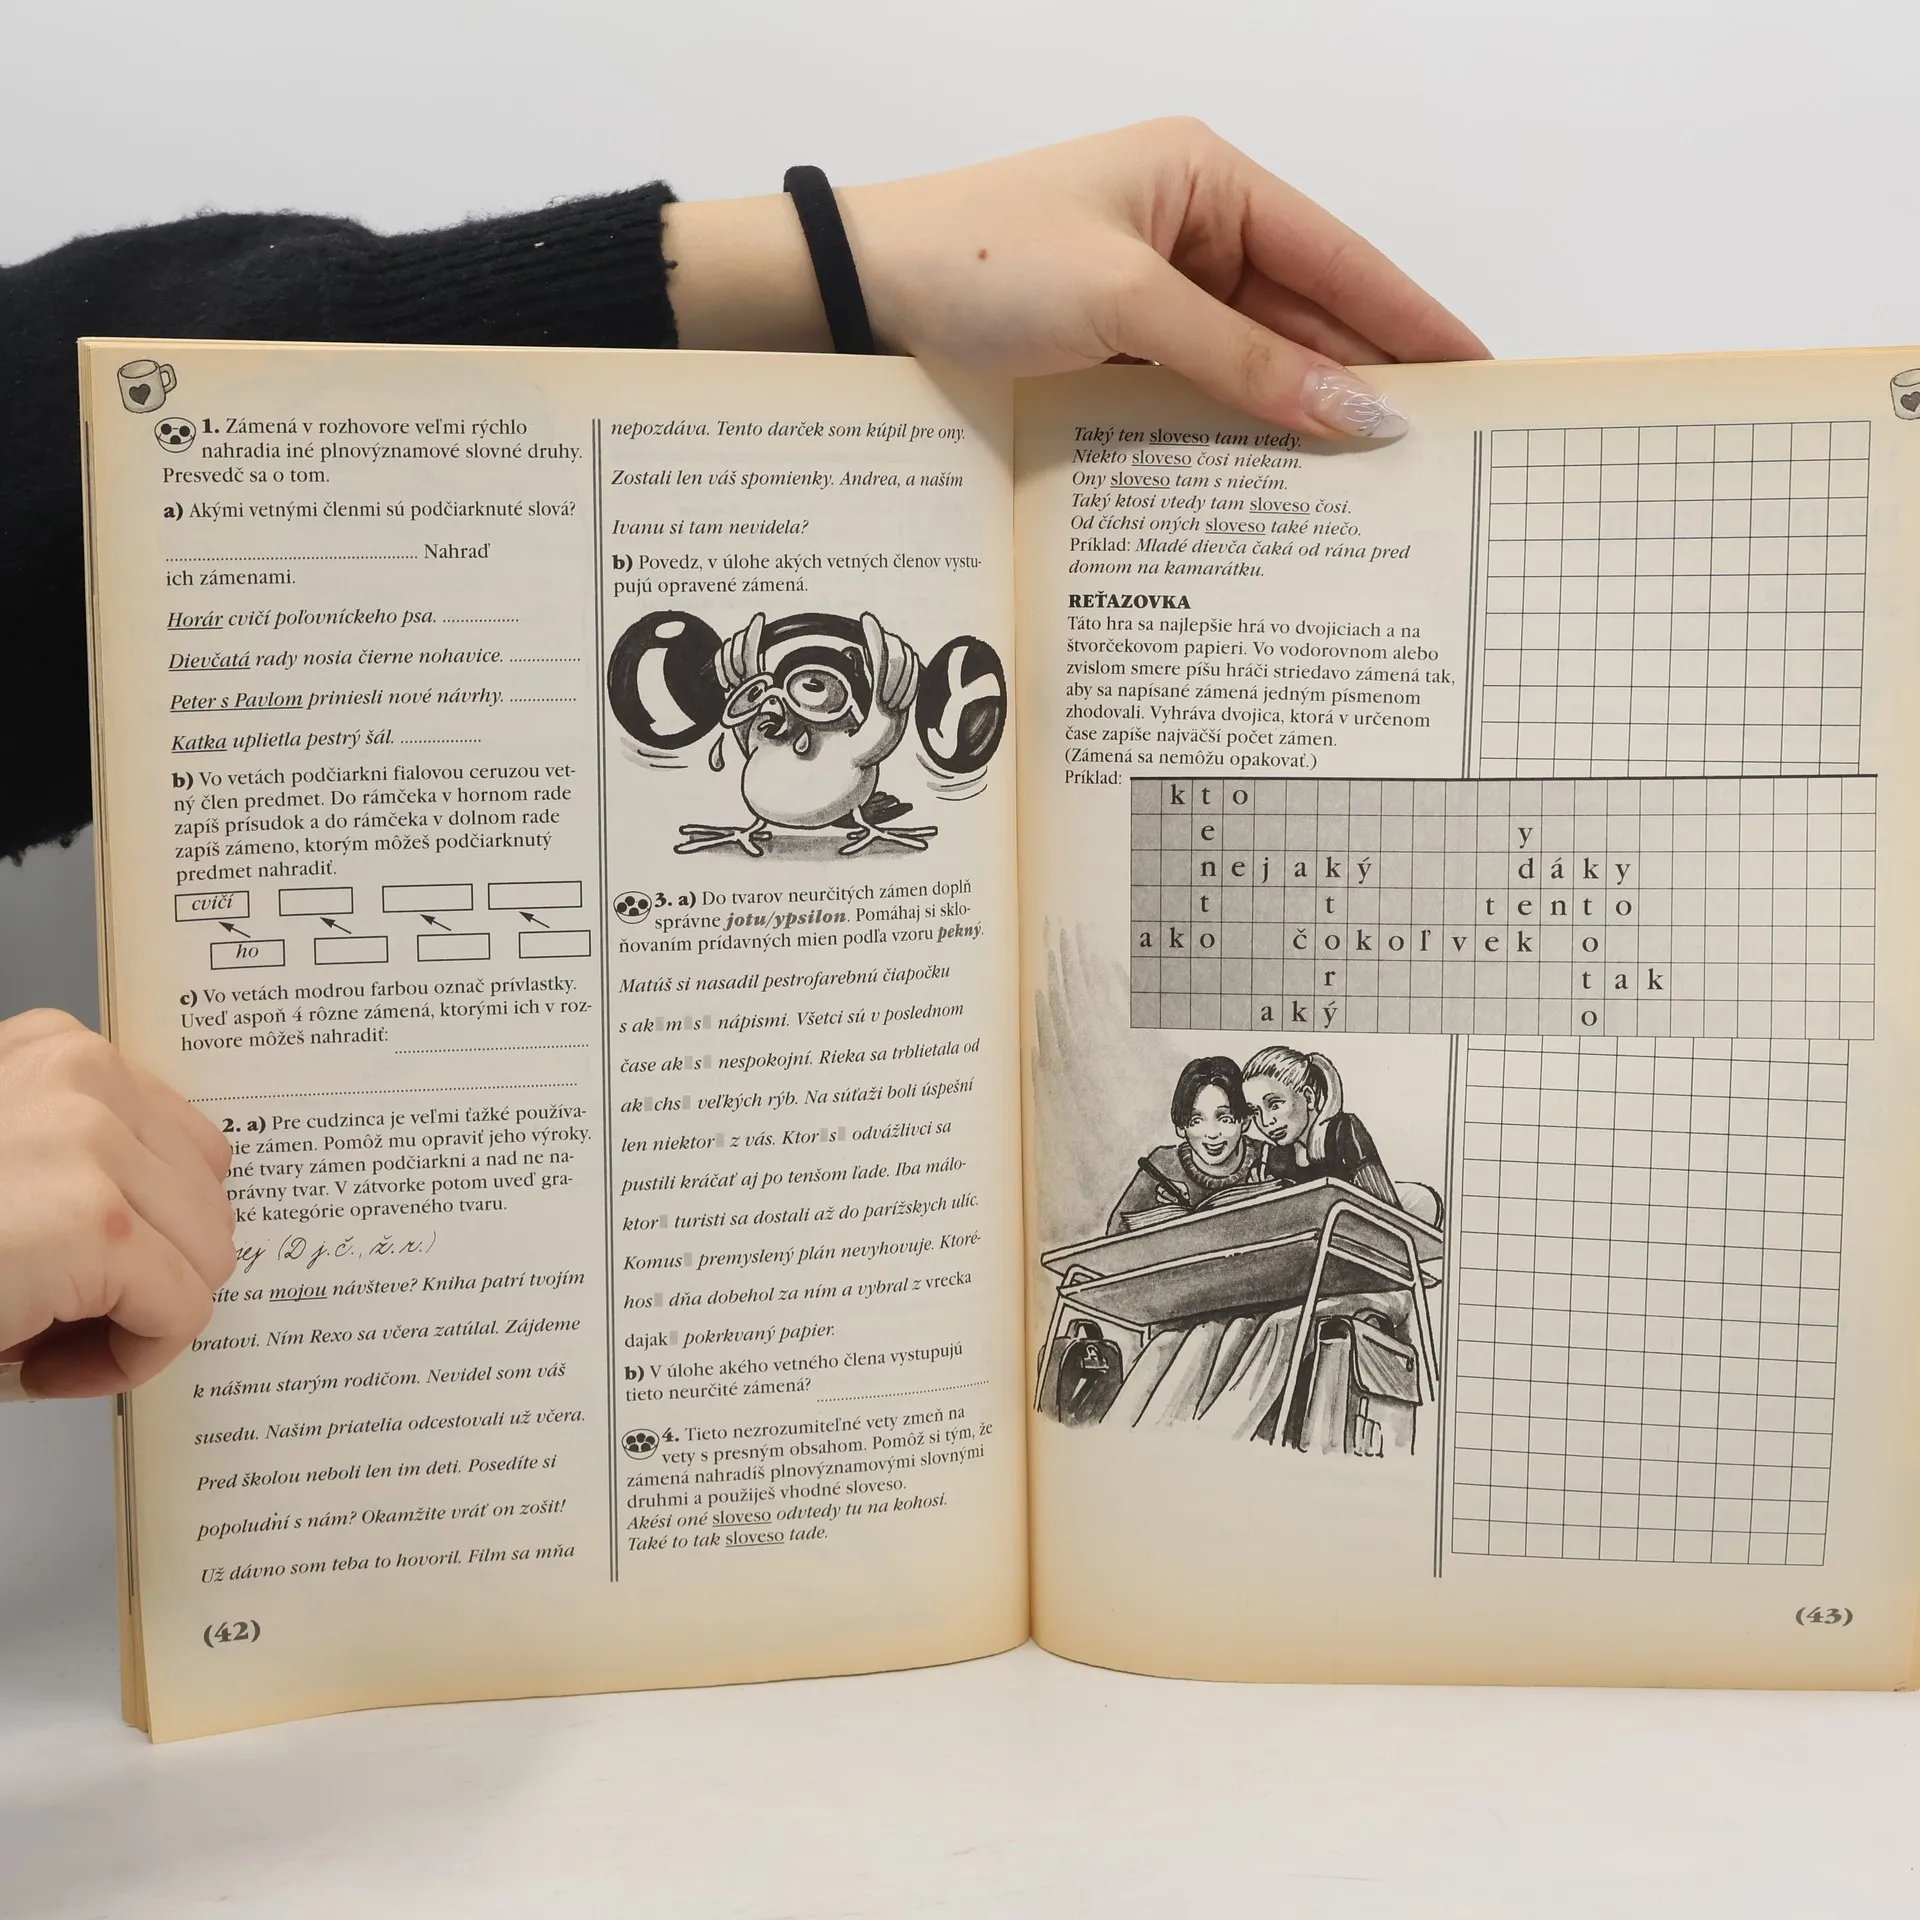 1. Zámená v rozhovore veľmi rýchlo
nahradia iné plnovýznamové slovné druhy.
Presvedč sa o tom.
a) Akými vetnými členmi sú podčiarknuté slová?
........................................ Nahraď
ich zámenami.
Horár cvičí poľovníckeho psa. ................
Dievčatá rady nosia čierne nohavice. ..............
Peter s Pavlom priniesli nové návrhy. .............
Katka uplietla pestrý šál. .................
b) Vo vetách podčiarkni fialovou ceruzou vet-
ný člen predmet. Do rámčeka v hornom rade
zapíš prísudok a do rámčeka v dolnom rade
zapíš zámeno, ktorým môžeš podčiarknutý
predmet nahradiť.
cvičí
ho
c) Vo vetách modrou farbou označ prívlastky.
Uveď aspoň 4 rôzne zámená, ktorými ich v roz-
hovore môžeš nahradiť: ..............................
............................................................
2. a) Pre cudzinca je veľmi ťažké používa-
nie zámen. Pomôž mu opraviť jeho výroky.
tvary zámen podčiarkni a nad ne na-
právny tvar. V zátvorke potom uveď gra-
ké kategórie opraveného tvaru.
jej (D j.č., ž.r.)
síte sa mojou návšteve? Kniha patrí tvojím
bratovi. Ním Rexo sa včera zatúlal. Zájdeme
k nášmu starým rodičom. Nevidel som váš
susedu. Našim priatelia odcestovali už včera.
Pred školou neboli len im deti. Posedíte si
popoludní s nám? Okamžite vráť on zošit!
Už dávno som teba to hovoril. Film sa mňa
(42)
nepozdáva. Tento darček som kúpil pre ony.
Zostali len váš spomienky. Andrea, a naším
Ivanu si tam nevidela?
b) Povedz, v úlohe akých vetných členov vystu-
pujú opravené zámená.
3. a) Do tvarov neurčitých zámen doplň
správne jotu/ypsilon. Pomáhaj si sklo-
ňovaním prídavných mien podľa vzoru pekný.
Matúš si nasadil pestrofarebnú čiapočku
s ak m s nápismi. Všetci sú v poslednom
čase ak s nespokojní. Rieka sa trblietala od
ak chs veľkých rýb. Na súťaži boli úspešní
len niektor z vás. Ktor s odvážlivci sa
pustili kráčať aj po tenšom ľade. Iba málo-
ktor turisti sa dostali až do parížskych ulíc.
Komus premyslený plán nevyhovuje. Ktoré-
hos dňa dobehol za ním a vybral z vrecka
dajak pokrkvaný papier.
b) V úlohe akého vetného člena vystupujú
tieto neurčité zámená? ..............................
4. Tieto nezrozumiteľné vety zmeň na
vety s presným obsahom. Pomôž si tým, že
zámená nahradíš plnovýznamovými slovnými
druhmi a použiješ vhodné sloveso.
Akési oné sloveso odvtedy tu na kohosi.
Také to tak sloveso tade.
Taký ten sloveso tam vtedy.
Niekto sloveso čosi niekam.
Ony sloveso tam s niečím.
Taký ktosi vtedy tam sloveso čosi.
Od číchsi oných sloveso také niečo.
Príklad: Mladé dievča čaká od rána pred
domom na kamarátku.
REŤAZOVKA
Táto hra sa najlepšie hrá vo dvojiciach a na
štvorčekovom papieri. Vo vodorovnom alebo
zvislom smere píšu hráči striedavo zámená tak,
aby sa napísané zámená jedným písmenom
zhodovali. Vyhráva dvojica, ktorá v určenom
čase zapíše najväčší počet zámen.
(Zámená sa nemôžu opakovať.)
Príklad:
k t o
e y
n e j a k ý d á k y
t t t e n t o
a k o č o k o ľ v e k o
r t a k
a k ý o
(43)